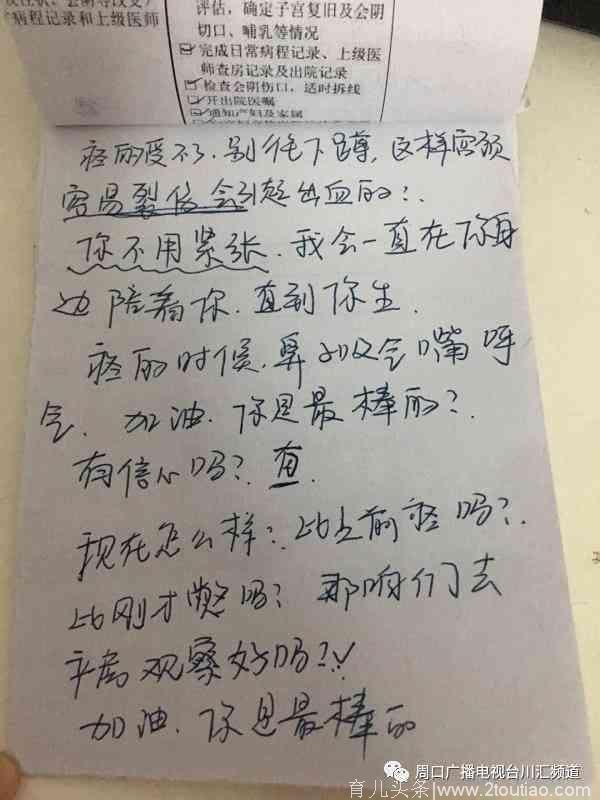 病程记录和上级医师
评估,确定子宫复旧及会阴
切口、哺乳等情况
完成日常病程记录、上级医
师查房记录及出院记录
检查会阴伤口,适时拆线
开出院医嘱
通知产妇及家属
疼的受不了,别往下蹲,这样宫颈
容易裂伤会引起出血的?.
你不用紧张.我会一直在你身
边陪着你.直到你生.
疼的时候.鼻子吸气嘴呼
气.加油.你是最棒的?.
有信心吗?.有.
现在怎么样?.比之前疼吗?.
比刚才憋吗?那咱们去
产房观察好吗?
加油.你是最棒的
周口广播电视台川汇频道
育儿头条|www.2toutiao.com